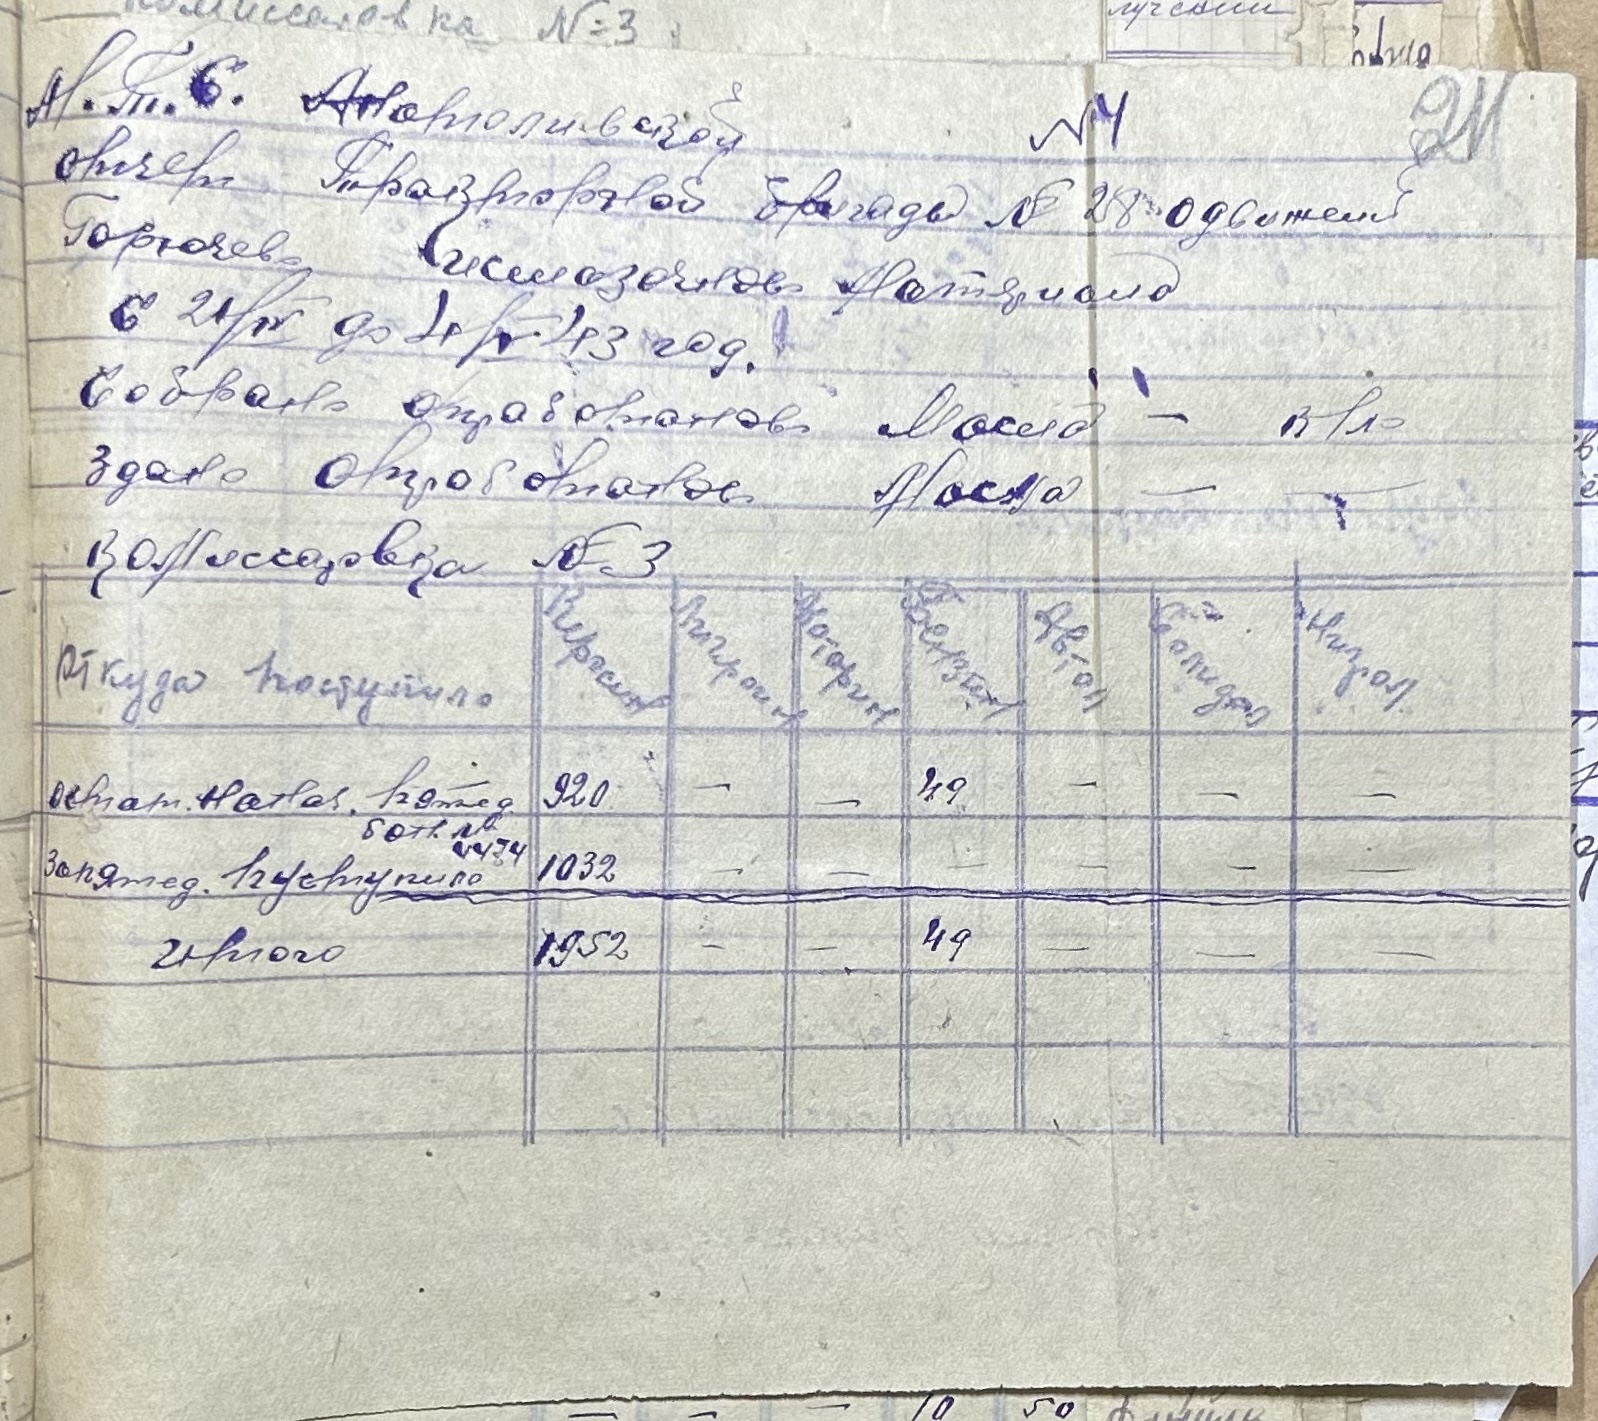 Комиссаровка №=3
М.Т.С. Анатоливской №4
21
отчёт Тракторной бригады № 28 о движений
Горючево и смазочново Материала
С 21/IV до 1/V 43 год.
Собрано отработаново Масла — кг
Здано отработаново Масла —
Комиссаровка № 3
Откуда поступило Керасин Лигроин Моторин Бензин Автол Солидол Нигрол
остат. на нач. пятед. 920 — — 49 — — —
За пятед. поступило 1032 — — — — — —
Итого 1952 — — 49 — — —
10 50